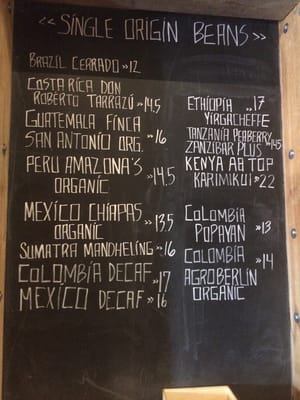 << SINGLE ORIGIN BEANS >>
BRAZIL CERRADO »12
COSTA RICA DON
ROBERTO TARRAZÚ »14.5
GUATEMALA FINCA
SAN ANTONIO ORG. »16
PERU AMAZONA'S
ORGANIC »14.5
MEXICO CHIAPAS
ORGANIC »13.5
SUMATRA MANDHELING »16
COLOMBIA DECAF »17
MEXICO DECAF »16
ETHIOPIA »17
YIRGACHEFFE
TANZANIA PEABERRY
ZANZIBAR PLUS »14.5
KENYA AA TOP
KARIMIKUI »22
COLOMBIA
POPAYAN »13
COLOMBIA »14
AGROBERLIN
ORGANIC